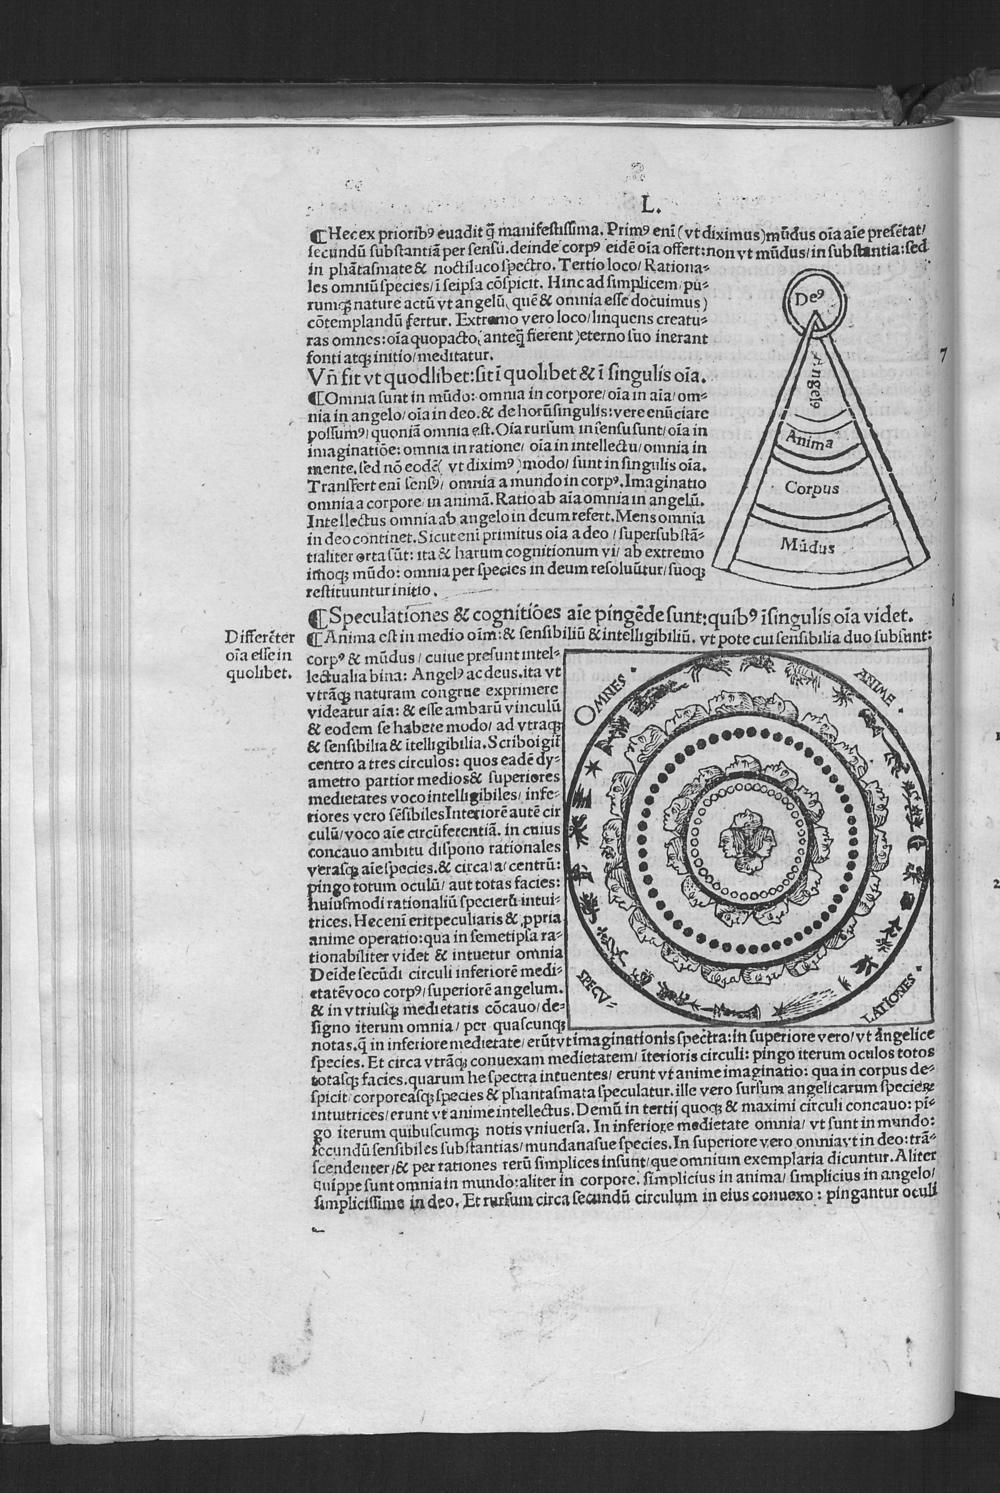 L.
¶Hec ex priorib⁹ euadit q̃ manifestissima. Prim⁹ eni͂ (vt diximus) mũdus oĩa aĩe presẽtat/
secundũ substantiã per sensũ. deinde corp⁹ eidẽ oĩa offert: non vt mũdus/ in substantia: sed
in phãtasmate & noctiluco spectro. Tertio loco/ Rationa-
les omniũ species/ ĩ seipsa cõspicit. Hinc ad simplicem/ pu-
rumq; nature actũ vt angelũ (quẽ & omnia esse docuimus)
cõtemplandũ fertur. Extremo vero loco/ linquens creatu-
ras omnes: oĩa quo pacto (anteq̃ fierent) eterno suo inerant
fonti atq; initio/ meditatur.
Vñ fit vt quodlibet: sit ĩ quolibet & ĩ singulis oĩa.
¶Omnia sunt in mũdo: omnia in corpore/ oĩa in aĩa/ om-
nia in angelo/ oĩa in deo. & de horũ singulis: vere enũciare
possum⁹/ quoniã omnia est. Oĩa rursum in sensu sunt/ oĩa in
imaginatiõe: omnia in ratione/ oĩa in intellectu/ omnia in
mente. sed nõ eodẽ (vt dixim⁹) modo/ sunt in singulis oĩa.
Transfert eni͂ sens⁹/ omnia a mundo in corp⁹. Imaginatio
omnia a corpore/ in animã. Ratio ab aĩa omnia in angelũ.
Intellectus omnia ab angelo in deum refert. Mens omnia
in deo continet. Sicut eni͂ primitus oĩa a deo/ supersubstã-
tialiter orta sũt: ita & harum cognitionum vi/ ab extremo
imoq; mũdo: omnia per species in deum resoluũtur/ suoq;
restituuntur initio.
De⁹
Angel⁹
Anima
Corpus
Mũdus
7
¶Speculationes & cognitiões aĩe pingẽde sunt: quib⁹ ĩ singulis oĩa videt.
Differẽter
oĩa esse in
quolibet.
¶Anima est in medio oĩm: & sensibiliũ & intelligibiliũ. vt pote cui sensibilia duo subsunt:
corp⁹ & mũdus/ cuiue presunt intel-
lectualia bina: Angel⁹ ac deus. ita vt
vtrãq; naturam congrue exprimere
videatur aĩa: & esse ambarũ vinculũ
& eodem se habere modo/ ad vtraq;
& sensibilia & ĩtelligibilia. Scribo igĩt
centro a tres circulos: quos eadẽ dy-
ametro partior medios & superiores
medietates voco intelligibiles/ infe-
riores vero sẽsibiles Interiorẽ autẽ cir
culũ/ voco aĩe circũferentiã. in cuius
concauo ambitu dispono rationales
verasq; aĩe species. & circa/a/ centrũ:
pingo totum oculũ/ aut totas facies:
huiusmodi rationaliũ specierũ intui-
trices. Hec eni͂ erit peculiaris & ꝓpria
anime operatio: qua in semetipsa ra-
tionabiliter videt & intuetur omnia
Deĩde secũdi circuli inferiorẽ medi-
etatẽ voco corp⁹/ superiorẽ angelum.
& in vtriusq; medietatis cõcauo/ de-
signo iterum omnia/ per quascunq;
OMNES.
ANIME.
SPECV-
LATIONES.
notas. q̃ in inferiore medietate/ erũt vt imaginationis spectra: in superiore vero/ vt angelice
species. Et circa vtrãq; conuexam medietatem/ ĩterioris circuli: pingo iterum oculos totos
totasq; facies. quarum he spectra intuentes/ erunt vt anime imaginatio: qua in corpus de-
spicit/ corporeasq; species & phantasmata speculatur. ille vero sursum angelicarum specieꝝ
intuitrices/ erunt vt anime intellectus. Demũ in tertij quoq; & maximi circuli concauo: pĩ-
go iterum quibuscumq; notis vniuersa. In inferiore medietate omnia/ vt sunt in mundo:
secundũ sensibiles substantias/ mundanasue species. In superiore vero omnia vt in deo: trã-
scendenter/ & per rationes rerũ simplices insunt/ que omnium exemplaria dicuntur. Aliter
quippe sunt omnia in mundo: aliter in corpore. simplicius in anima/ simplicius in angelo/
simplicissime in deo. Et rursum circa secundũ circulum in eius conuexo: pingantur oculi